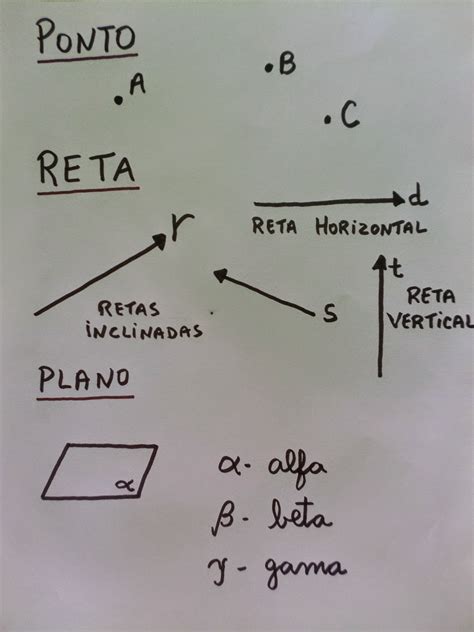 PONTO
A
B
C
RETA
r
d
RETA HORIZONTAL
t
RETAS
INCLINADAS
s
RETA
VERTICAL
PLANO
α
α - alfa
β - beta
γ - gama